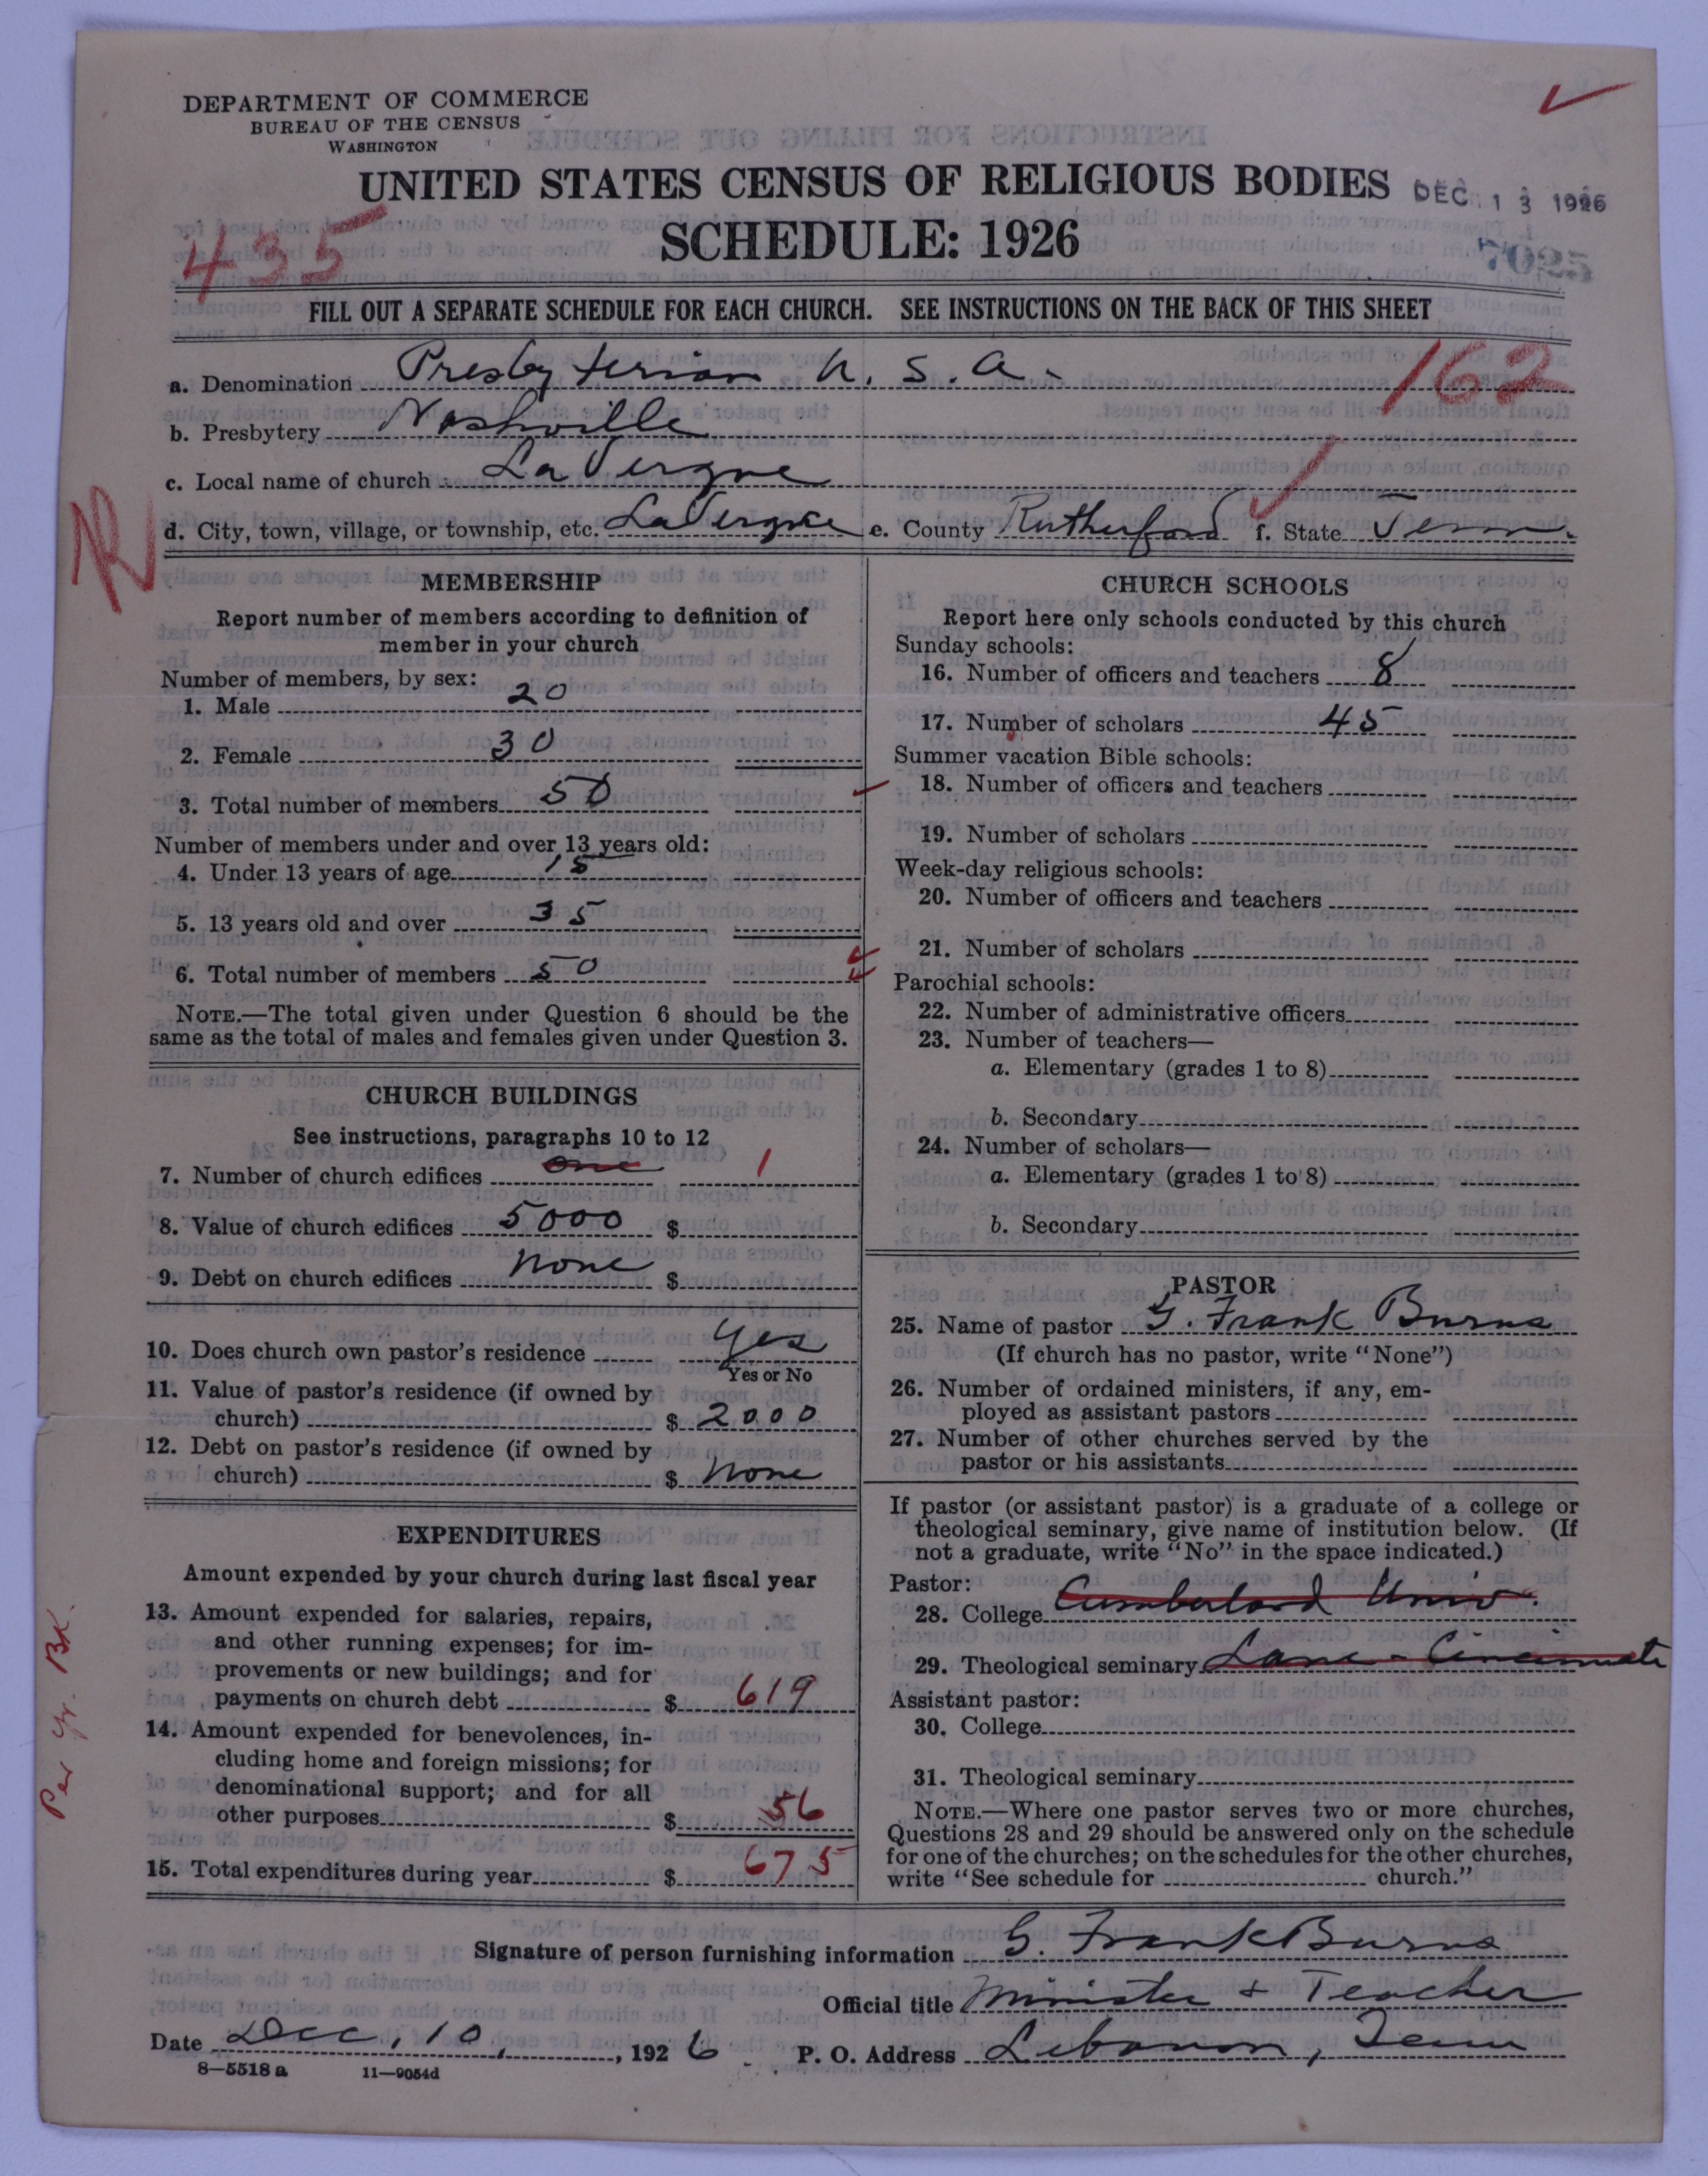 DEPARTMENT OF COMMERCE
BUREAU OF THE CENSUS
WASHINGTON
UNITED STATES CENSUS OF RELIGIOUS BODIES
DEC 13 1926
SCHEDULE: 1926
435
7025
FILL OUT A SEPARATE SCHEDULE FOR EACH CHURCH. SEE INSTRUCTIONS ON THE BACK OF THIS SHEET
a. Denomination Presbyterian U. S. A.
162
b. Presbytery Nashville
c. Local name of church La Vergne
d. City, town, village, or township, etc. LaVergne e. County Rutherford f. State Tenn.
MEMBERSHIP
Report number of members according to definition of
member in your church
Number of members, by sex:
1. Male 20
2. Female 30
3. Total number of members 50
Number of members under and over 13 years old:
4. Under 13 years of age 15
5. 13 years old and over 35
6. Total number of members 50
NOTE.—The total given under Question 6 should be the
same as the total of males and females given under Question 3.
CHURCH BUILDINGS
See instructions, paragraphs 10 to 12
7. Number of church edifices one 1
8. Value of church edifices 5000 $
9. Debt on church edifices None $
10. Does church own pastor's residence Yes
Yes or No
11. Value of pastor's residence (if owned by
church) $ 2000
12. Debt on pastor's residence (if owned by
church) $ None
EXPENDITURES
Amount expended by your church during last fiscal year
13. Amount expended for salaries, repairs,
and other running expenses; for im-
provements or new buildings; and for
payments on church debt $ 619
14. Amount expended for benevolences, in-
cluding home and foreign missions; for
denominational support; and for all
other purposes $ 56
15. Total expenditures during year $ 675
Per Yr. Bk.
CHURCH SCHOOLS
Report here only schools conducted by this church
Sunday schools:
16. Number of officers and teachers 8
17. Number of scholars 45
Summer vacation Bible schools:
18. Number of officers and teachers
19. Number of scholars
Week-day religious schools:
20. Number of officers and teachers
21. Number of scholars
Parochial schools:
22. Number of administrative officers
23. Number of teachers—
a. Elementary (grades 1 to 8)
b. Secondary
24. Number of scholars—
a. Elementary (grades 1 to 8)
b. Secondary
PASTOR
25. Name of pastor G. Frank Burns
(If church has no pastor, write "None")
26. Number of ordained ministers, if any, em-
ployed as assistant pastors
27. Number of other churches served by the
pastor or his assistants
If pastor (or assistant pastor) is a graduate of a college or
theological seminary, give name of institution below. (If
not a graduate, write "No" in the space indicated.)
Pastor:
28. College Cumberland Univ.
29. Theological seminary Lane - Cincinnati
Assistant pastor:
30. College
31. Theological seminary
NOTE.—Where one pastor serves two or more churches,
Questions 28 and 29 should be answered only on the schedule
for one of the churches; on the schedules for the other churches,
write "See schedule for church."
Signature of person furnishing information G. Frank Burns
Official title Minister + Teacher
Date Dec, 10, 1926
P. O. Address Lebanon, Tenn
8—5518 a 11—9054d